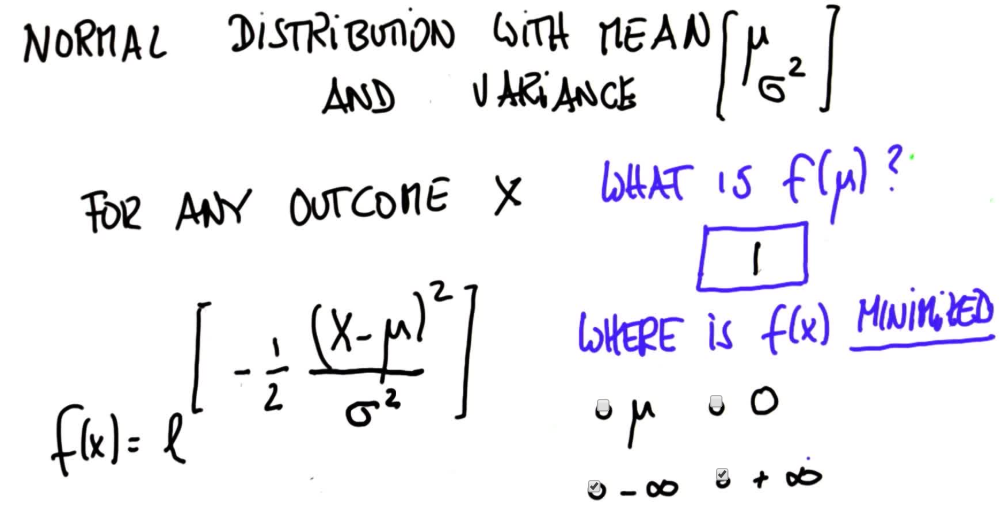 NORMAL DISTRIBUTION WITH MEAN [μ
AND VARIANCE σ²]
FOR ANY OUTCOME X
f(x) = e^[-1/2 (X-μ)²/σ²]
WHAT IS f(μ)?
1
WHERE IS f(x) MINIMIZED
μ 0
-∞ +∞